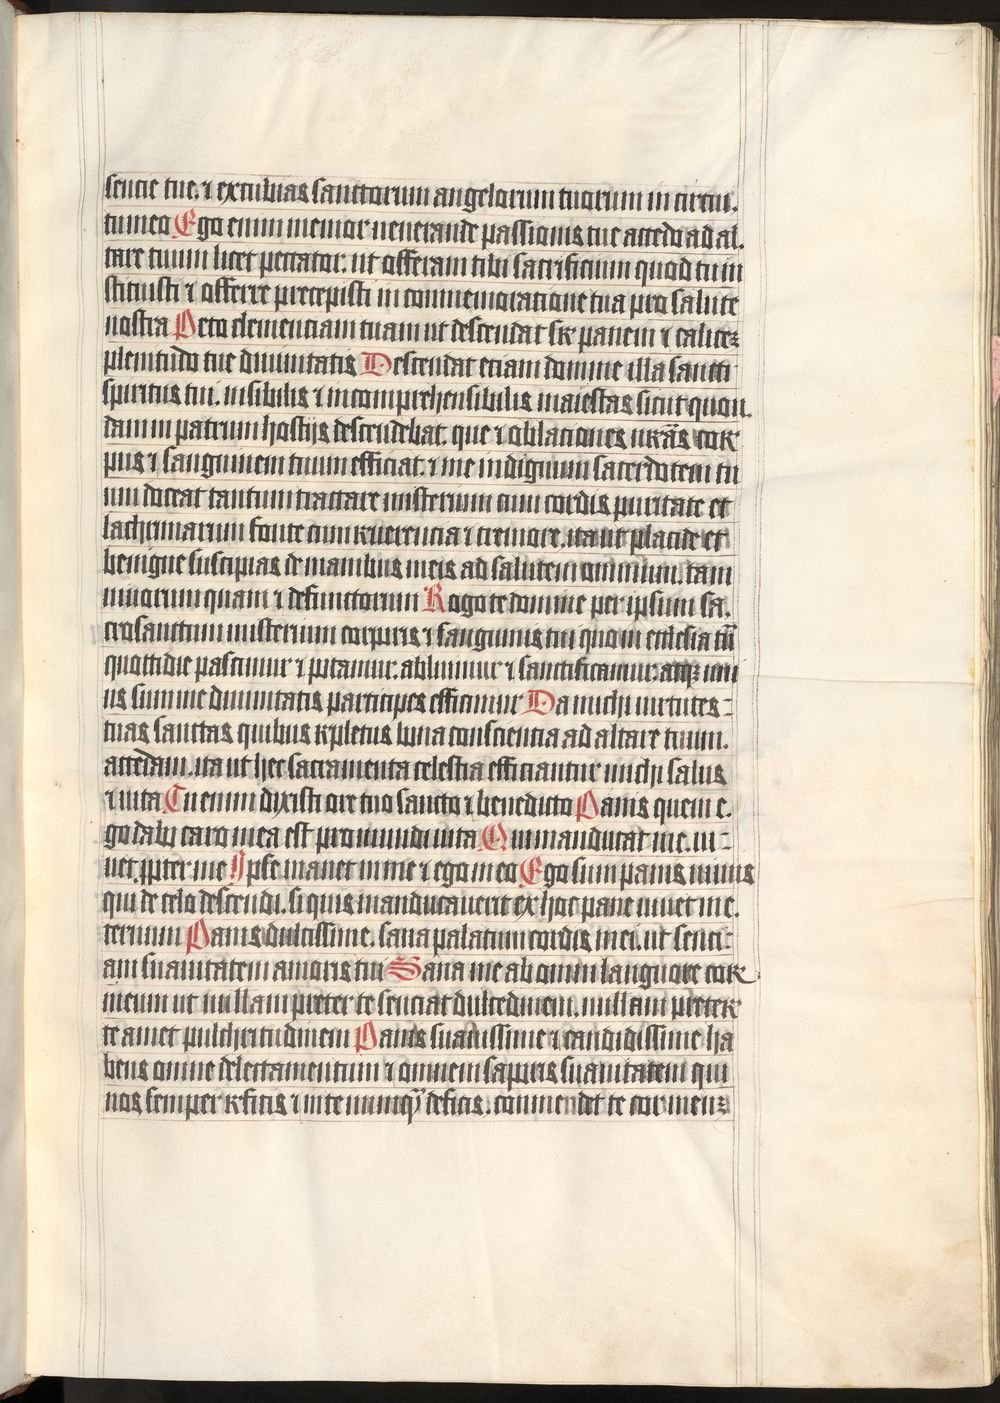 sencie tue. ⁊ excubias sanctorum angelorum tuorum in circui.
tu meo Ego enim memor uenerande passionis tue accedo ad al.
tare tuum licet peccator. ut offeram tibi sacrificium quod tu in
stituisti ⁊ offerre precepisti in commemoratione tua pro salute
nostra Peto clemenciam tuam ut descendat sr panem ⁊ calicez
plenitudo tue diuinitatis Descendat eciam domine illa sancti
spiritus tui. inisibilis ⁊ incomprehensibilis maiestas sicut quon.
dam in patrum hostijs descendebat. que ⁊ oblationes nras̄ cor
pus ⁊ sanguinem tuum efficiat. ⁊ me indignum sacerdotem tu
um doceat tantum tractare misterium cum cordis puritate et
lachrimarum fonte cum reuerencia ⁊ tremore. ita ut placide et
benigne suscipias de manibus meis ad salutem omnium. tam
uiuorum quam ⁊ defunctorum Rogo te domine per ipsum sa.
crosanctum misterium corporis ⁊ sanguinis tui quo in ecclesia tua
quottidie pascimur ⁊ potamur. abluimur ⁊ sanctificamur. atqz uni
us summe diuinitatis participes efficimur Da michi uirtutes
tuas sanctas quibus repletus bona consciencia ad altare tuum.
accedam. ita ut hec sacramenta celestia efficiantur michi salus
⁊ uita Tu enim dixisti ore tuo sancto ⁊ benedicto Panis quem e.
go dabo caro mea est pro mundi uita Qui manducat me. ui
uet ꝓpter me Ipse manet in me ⁊ ego in eo Ego sum panis uiuus
qui de celo descendi. si quis manducauerit ex hoc pane uiuet in e.
ternum Panis dulcissime. sana palatum cordis mei. ut senti
am suauitatem amoris tui Sana me ab omni languore cor
meum ut nullam preter te senciat dulcedinem. nullam preter
te amet pulchritudinem Panis suauissime ⁊ candidissime ha
bens omne delectamentum ⁊ omnem saporis suauitatem qui
nos semper reficis ⁊ in te numq̄ deficis. commedet te cor meuz